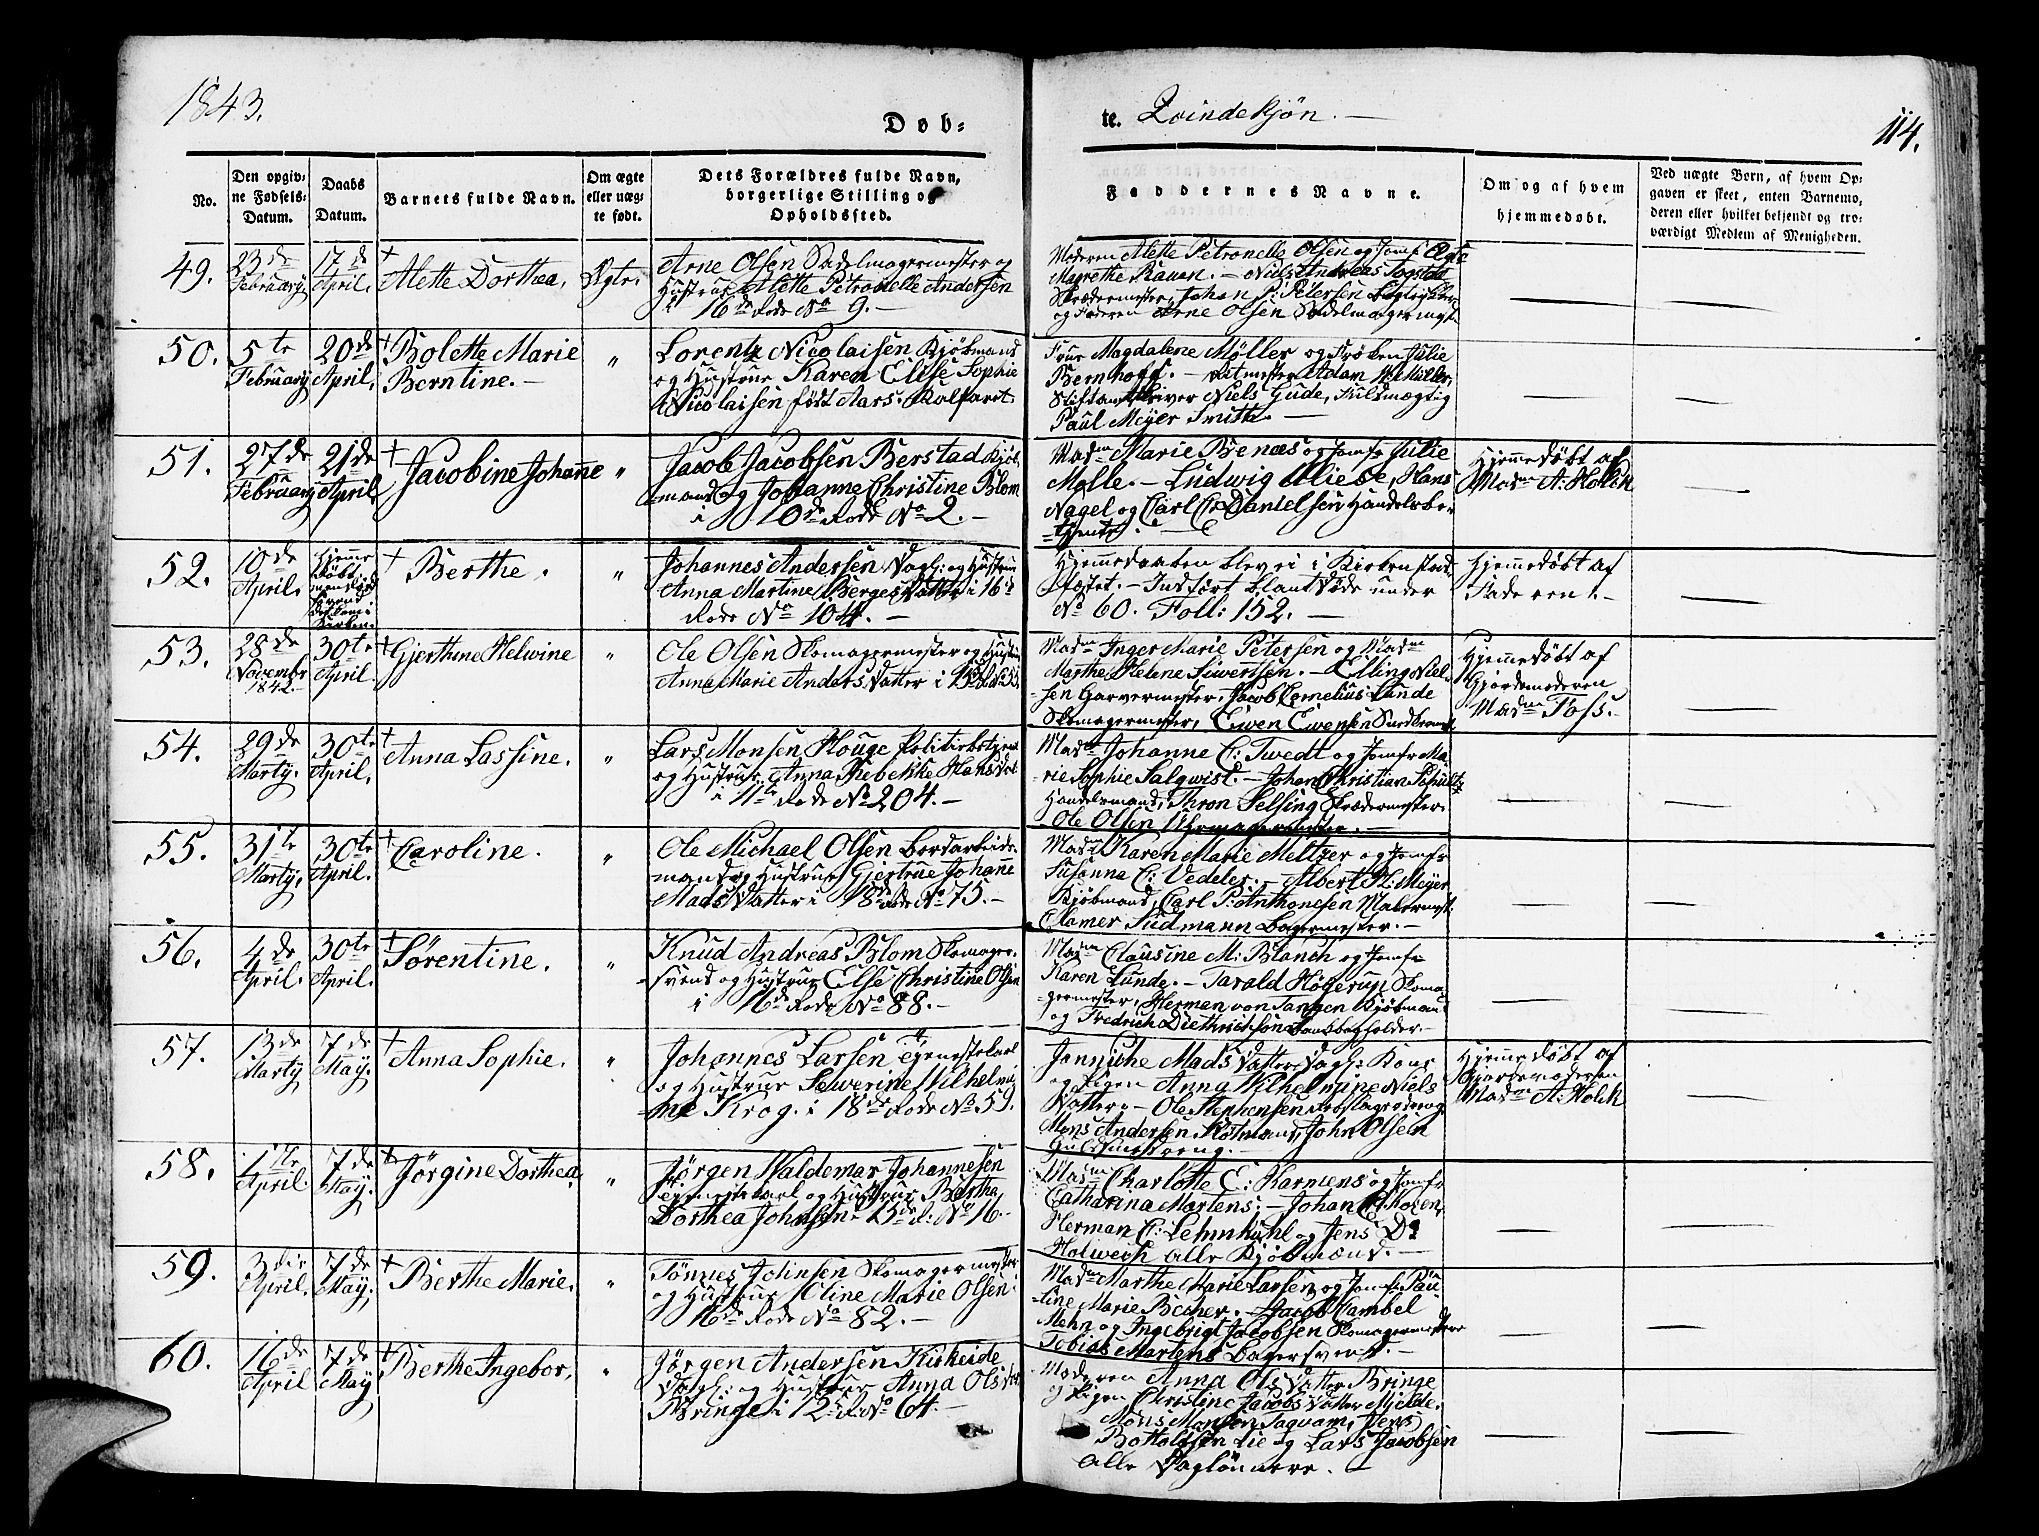 1843.
Döb-
te. Qvindekjön.
114.
No.
Den opgiv-
ne Födsels-
Datum.
Daabs
Datum.
Barnets fulde Navn.
Om ægte
eller uæg-
te født.
Dets Forældres fulde Navn,
borgerlige Stilling og
Opholdssted.
Faddernes Navne.
Om og af hvem
hjemmedøbt.
Ved uægte Børn, af hvem Op-
gaven er skeet, enten Barnemo-
deren eller hvilket bekjendt og tro-
værdigt Medlem af Menigheden.
49.
23de
February
17de
April.
+
Alette Dorthea.
Ægte.
Arne Olsen Sadelmagermester og
Hustrue Alette Petronelle Andersen
i 16de Rode No 9.
Moderen Alette Petronelle Olsen og Jomf:
Magrethe Rauen. Niels Andreas
Skrædermester, Johan P: Petersen
og Faderen Arne Olsen Sadelmagermest:
50.
5te
February
20de
April.
+
Bolette Marie
Berntine.
"
Lorentz Nicolaisen Kjöbmand
og Hustrue Karen Elise Sophie
Nicolaisen født Aars. Kalfaret
Frue Magdalene Möller og Frøken Julie
Bernhoft. Ritmester Adam Müller,
Stiftamtskriver Niels Gude, Fuldmægtig
Paul Meyer Smith.
51.
27de
February
21de
April
+
Jacobine Johanne
"
Jacob Jacobsen Berstad Kjöb-
mand og Johanne Christine Blom
i 10de Rode No 2.
Madm Marie og Jomfr Julie
Ludwig Miebe, Hans
Nagel og Carl Danielsen Handelsbe-
tjente.
Hjemmedøbt af
Madm A. Holck
52.
10de
April.
Hjemme
døbt
+
Berthe.
"
Johannes Andersen Dagl: og Hustrue
Anna Martine Bergesdatter i 16de
Rode No 104.
Hjemmedaaben blev ei i Kirken stad-
fæstet. Indført blant Døde under
No 60. Foll: 152.
Hjemmedøbt af
Faderen.
53.
28de
Novembr
1842.
30te
April.
+
Gjerthine Helwine
"
Ole Olsen Skomagermester og Hustrue
Anne Marie Andersdatter i
Madm Inger Marie Petersen og Madm
Marthe Helene Siwertsen. Elling Niel-
sen Garvermester, Jacob Cornelius Lunde
Skomagermester, Ewen Ewensen
Hjemmedøbt af
Gjordemoderen
Madm Foss.
54.
29de
Marty.
30te
April.
+
Anna Lassine.
"
Lars Monsen Houge Politiebetjent
og Hustrue Anna Rebekke Hansdat
i 11te Rode No 204.
Madm Johanne C: Twedt og Jomfr Ma-
rie Sophie Salqwist. Johan Christian Schultz
Handelsmand, Thron Selsing Skrædermester
Ole Olsen Uhrmagermester.
55.
31te
Marty.
30te
April.
+
Caroline.
"
Ole Michael Olsen
mand og Hustrue Gjertrue Johanne
Madsdatter i 18de Rode No 75.
Madm Karen Marie Meltzer og Jomfr
Susanna C: Vedeler. Albert H: Meyer
Kjöbmand, Carl P: Anthonesen Malermest:
Clamer Sudmann Bagermester.
56.
4de
April.
30te
April.
+
Sørentine.
"
Knud Andreas Blom Skomager-
svend og Hustrue Else Christine Olsen
i 16de Rode No 88.
Madm Clausine M: Blanch og Jomfr
Karen Lunde. Tarald Högerup Skoma-
germester, Hermen von Tangen Kjöbmand
og Fredrich Diethrichson
57.
13de
Marty
7de
May.
+
Anna Sophie.
"
Johannes Larsen Tjenestekarl
og Hustrue Sewerine Wilhelmi-
ne Krog. i 18de Rode No 59.
Janniche Madsdatter Dagl: Kone
og Pigen Anna Wilhelmine Niels
datter. Ole Stephensen
Mons Andersen John Olsen
Hjemmedøbt af
Gjordemoderen
Madm A. Holck
58.
April.
7de
May.
+
Jörgine Dorthea
"
Jörgen Waldemar Johannesen
Tjenestekarl og Hustrue Bertha
Dorthea Johnsen. 15de R: No 16.
Madm Charlotte E: Karnens og Jomfr
Catharina Martens. Johan
Herman C: Lehmkuhl og Jens D:
Holwech alle Kjöbmænd.
59.
3die
April.
7de
May.
+
Berthe Marie.
"
Tönnes Johnsen Skomagermester
og Hustrue Oline Marie Olsen
16de Rode No 82.
Madm Marthe Marie Larsen og Jomf: Pau-
line Marie Becher. Jacob Wambel
Mehn og Ingebrigt Jacobsen Skomagermestere
Tobias Martens Bagersvend.
60.
16de
April
7de
May
+
Berthe Ingebor.
"
Jörgen Andersen Kirkeide
Dagl: og Hustrue Anna Olsdat
Bringe i 12te R: No 64.
Moderen Anna Olsdatter Bringe
og Pigen Christine Jacobsdatter Mjelde.
Mons Monsen Taqvam, Jens
Botholdsen Lie og Lars Jacobsen
alle Daglönnere.